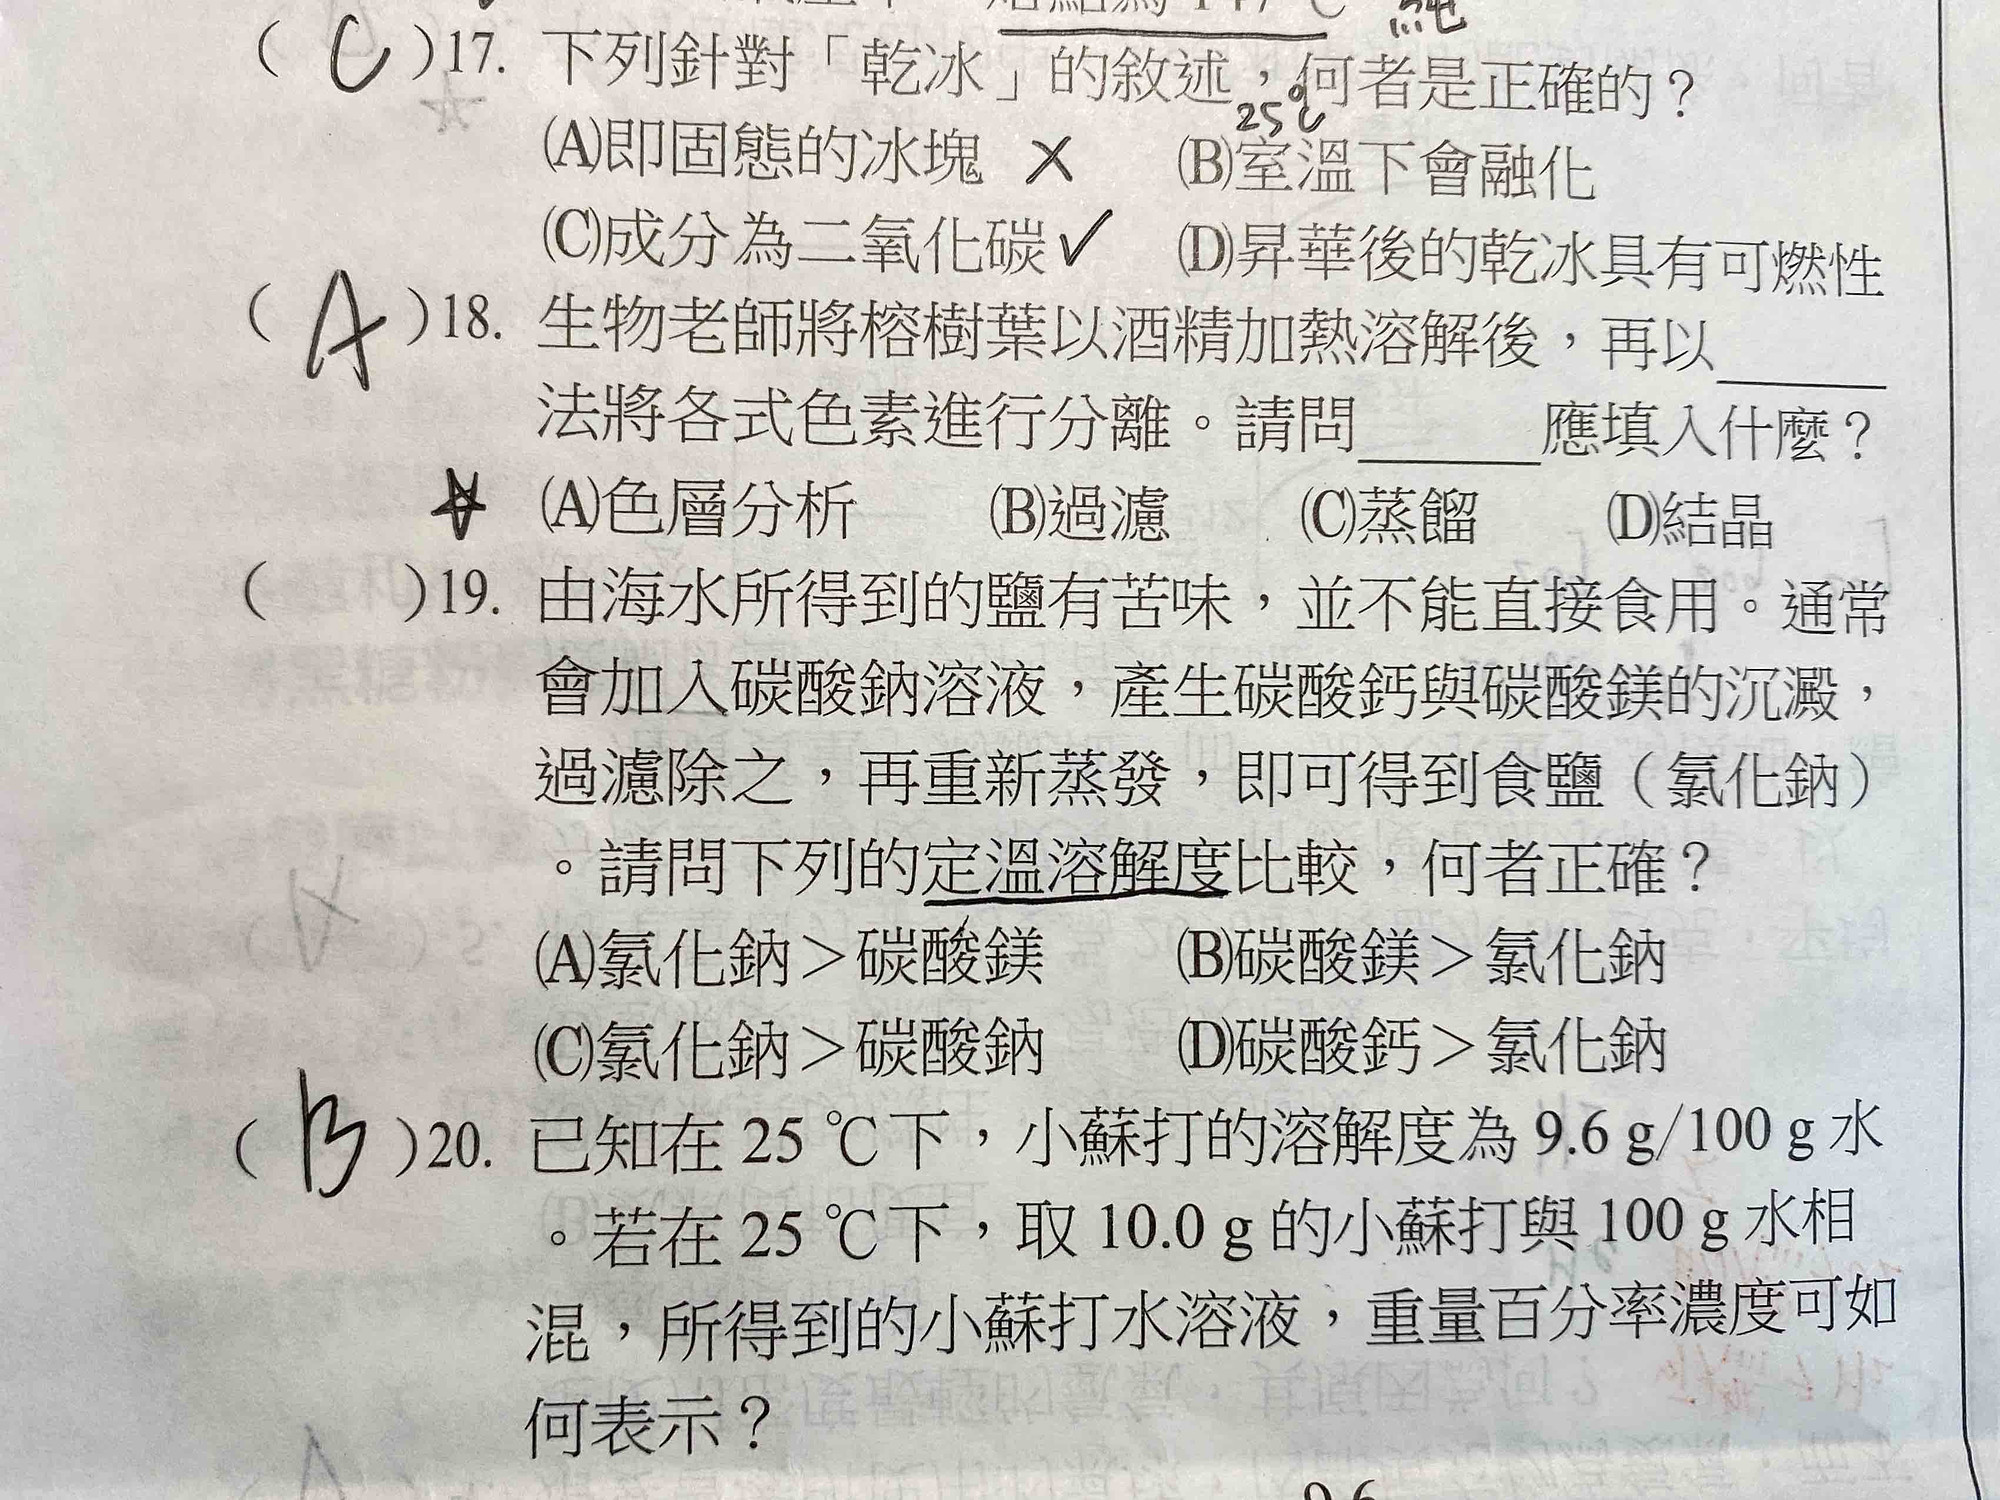 純
( C )17. 下列針對「乾冰」的敘述，何者是正確的？
25℃
(A)即固態的冰塊 × (B)室溫下會融化
(C)成分為二氧化碳✓ (D)昇華後的乾冰具有可燃性
( A )18. 生物老師將榕樹葉以酒精加熱溶解後，再以______
法將各式色素進行分離。請問______應填入什麼？
(A)色層分析 (B)過濾 (C)蒸餾 (D)結晶
( )19. 由海水所得到的鹽有苦味，並不能直接食用。通常
會加入碳酸鈉溶液，產生碳酸鈣與碳酸鎂的沉澱，
過濾除之，再重新蒸發，即可得到食鹽（氯化鈉）
。請問下列的定溫溶解度比較，何者正確？
(A)氯化鈉＞碳酸鎂 (B)碳酸鎂＞氯化鈉
(C)氯化鈉＞碳酸鈉 (D)碳酸鈣＞氯化鈉
( B )20. 已知在 25 ℃下，小蘇打的溶解度為 9.6 g/100 g 水
。若在 25 ℃下，取 10.0 g 的小蘇打與 100 g 水相
混，所得到的小蘇打水溶液，重量百分率濃度可如
何表示？